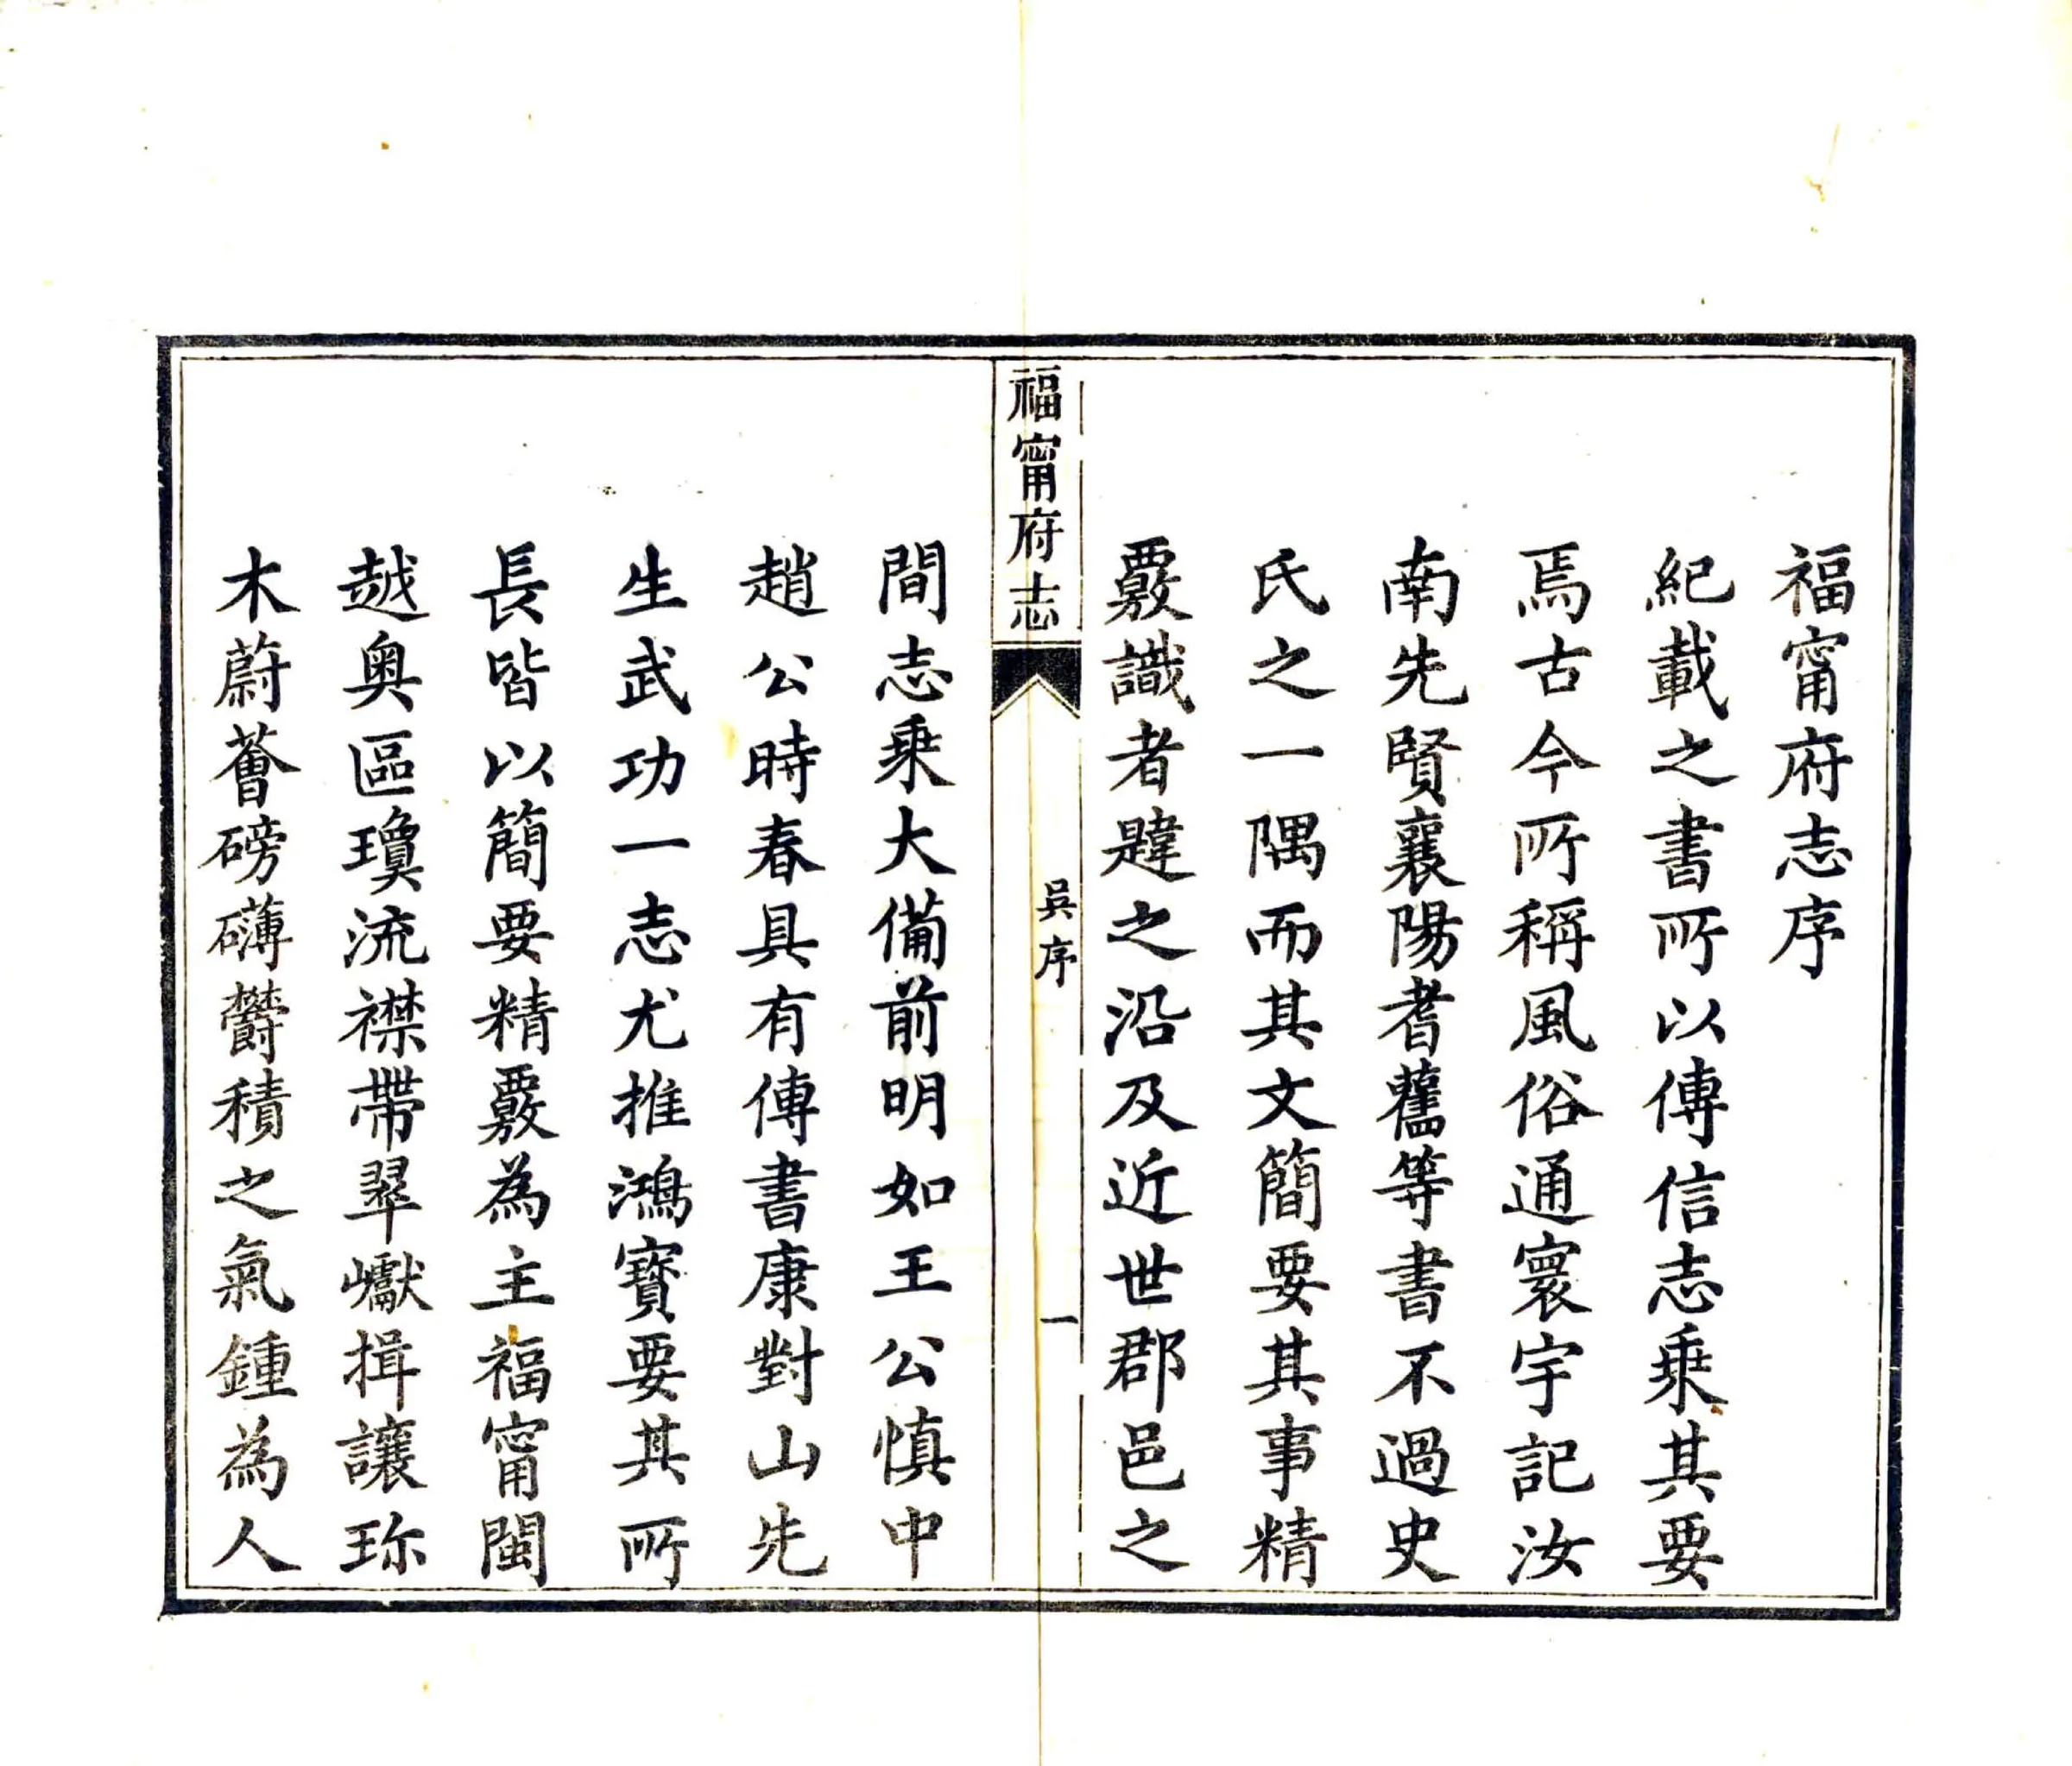 福甯府志序
紀載之書所以傳信志乘其要
焉古今所稱風俗通寰宇記汝
南先賢襄陽耆舊等書不過史
氏之一隅而其文簡要其事精
覈識者韙之沿及近世郡邑之
福甯府志
吳序
一
間志乘大備前明如王公慎中
趙公時春具有傳書康對山先
生武功一志尤推鴻寶要其所
長皆以簡要精覈為主福甯閩
越奧區瓊流襟帶翠巘揖讓珎
木蔚薈磅礴欝積之氣鍾為人